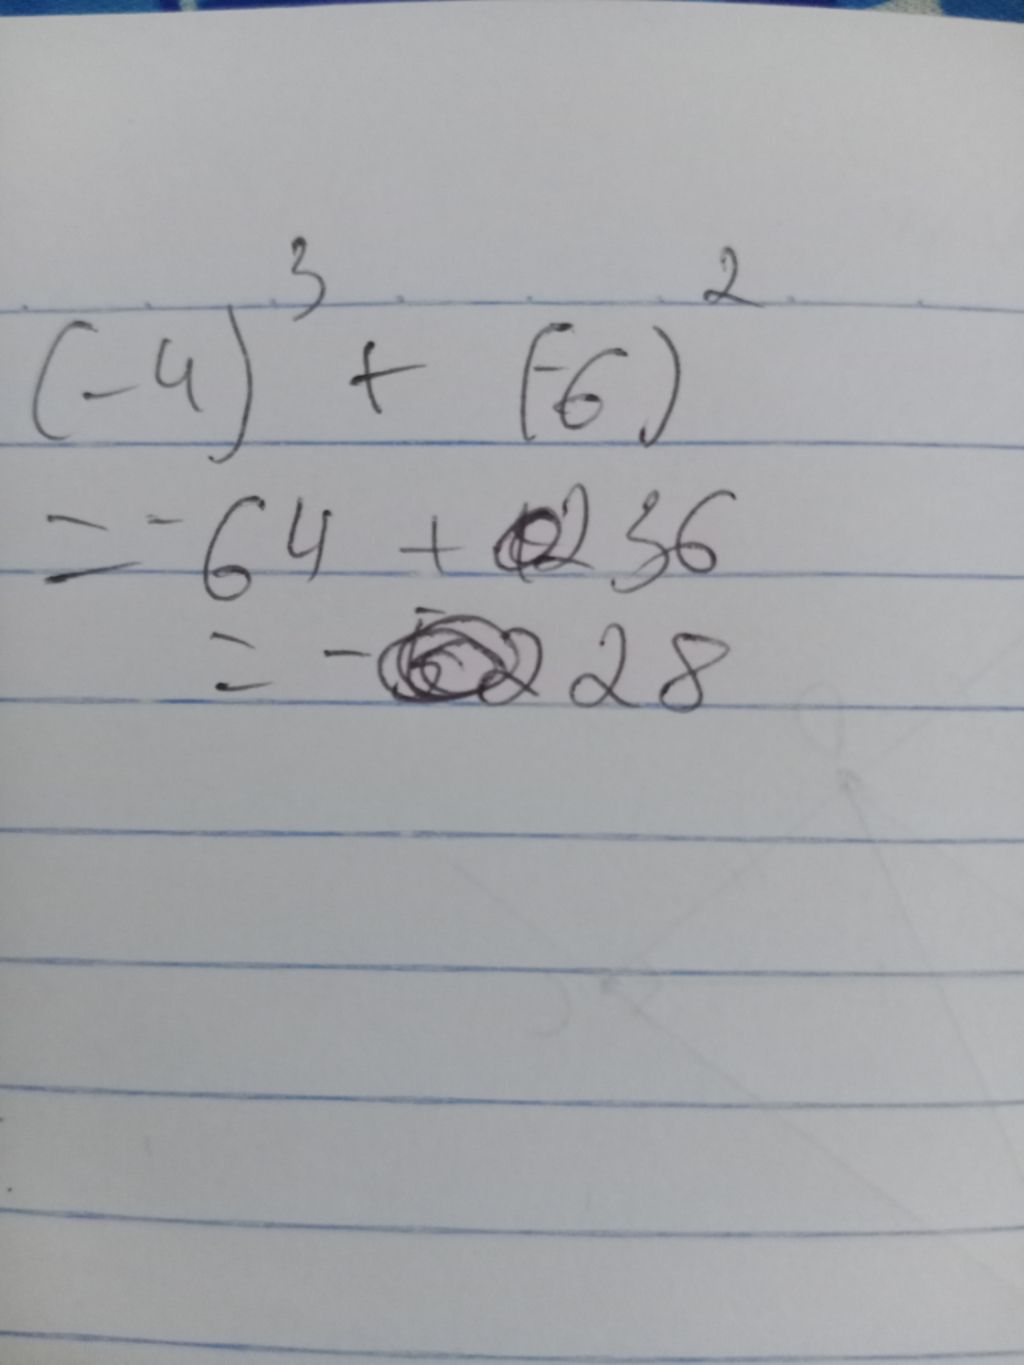 (-4)³ + (-6)²
= -64 + 36
= - 28